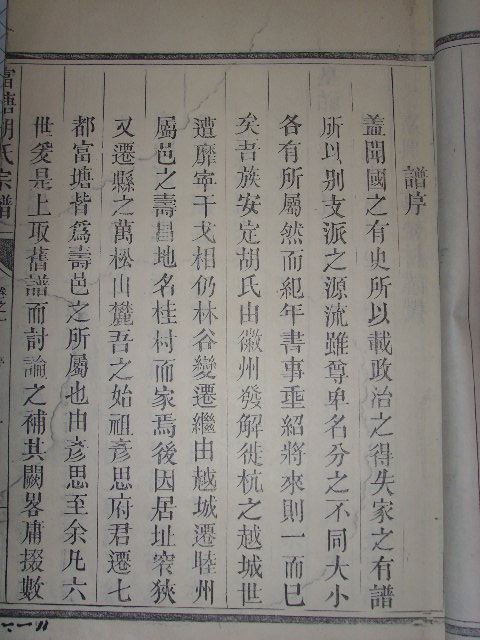 譜序
蓋聞國之有史所以載政治之得失家之有譜
所以别支派之源流雖尊卑名分之不同大小
各有所屬然而紀年書事垂紹將來則一而已
矣吾族安定胡氏由徽州發解徙杭之越城世
遭靡寧干戈相仍林谷變遷繼由越城遷睦州
屬邑之壽昌地名桂村而家焉後因居址窄狹
又遷縣之萬松山麓吾之始祖彥思府君遷七
都富塘皆爲壽邑之所屬也由彥思至余凡六
世爰是上取舊譜而討論之補其闕畧庸掇數
富塘胡氏宗譜
卷之一